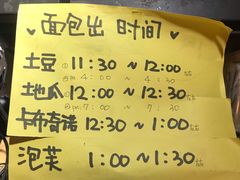 ♥ 面包出 时间 ♥
土豆 ① 11:30 ~ 12:00
4:00 ~ 4:30
地瓜 12:00 ~ 12:00
7:30
卡布奇诺 12:30 ~ 1:00
泡芙 1:00 ~ 1:30